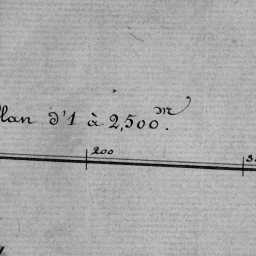 Plan d'1 à 2,500 m.
200